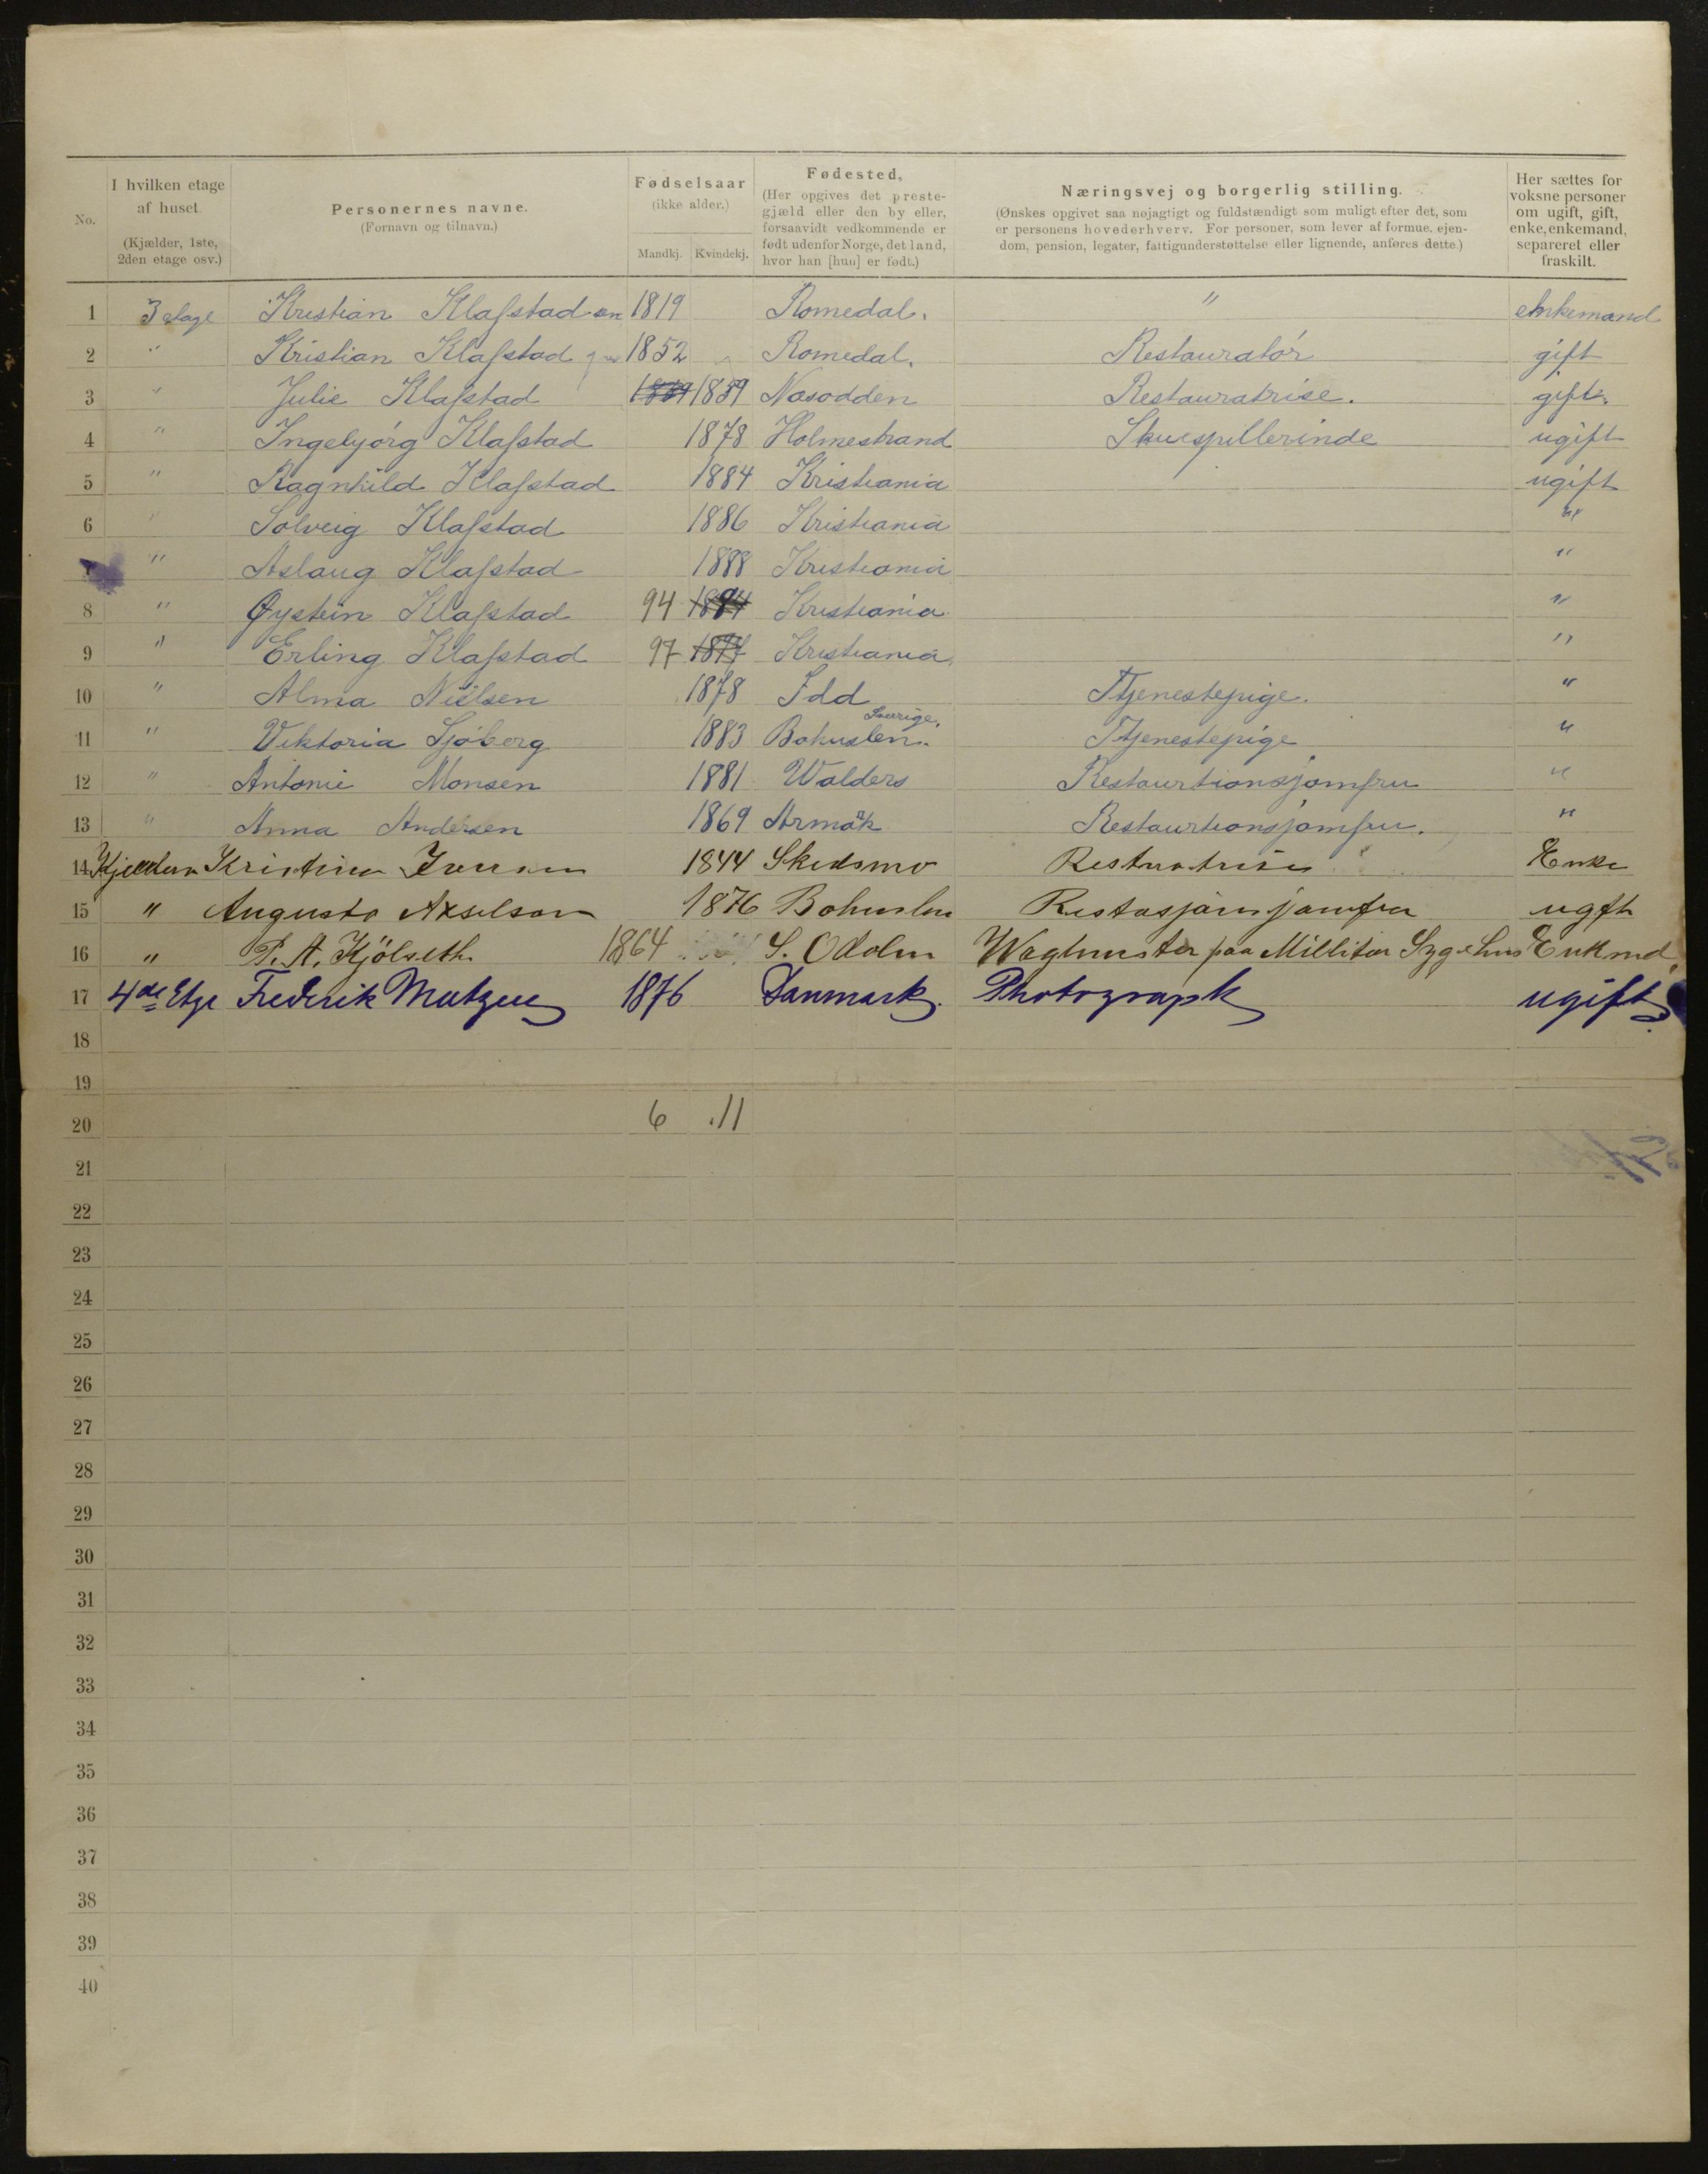 No.
I hvilken etage af huset.
(Kjælder, 1ste, 2den etage osv.)
Personernes navne.
(Fornavn og tilnavn.)
Fødselsaar
(ikke alder.)
Mandkj. Kvindekj.
Fødested,
(Her opgives det preste-
gjæld eller den by eller,
forsaavidt vedkommende er
født udenfor Norge, det land,
hvor han [hun] er født.)
Næringsvej og borgerlig stilling.
(Ønskes opgivet saa nøjagtigt og fuldstændigt som muligt efter det, som
er personens hovederhverv. For personer, som lever af formue, ejen-
dom, pension, legater, fattigunderstøttelse eller lignende, anføres dette.)
Her sættes for
voksne personer
om ugift, gift,
enke, enkemand,
separeret eller
fraskilt.
1 3 etage Kristian Klafstad sen 1819 Romedal. " enkemand
2 " Kristian Klafstad 1852 Romedal. Restauratør gift
3 " Julie Klafstad 1859 Nesodden Restauratrise. gift.
4 " Ingebjørg Klafstad 1878 Holmestrand Skuespillerinde ugift
5 " Ragnhild Klafstad 1884 Kristiania ugift
6 " Solveig Klafstad 1886 Kristiania "
" Aslaug Klafstad 1888 Kristiania "
8 " Øystein Klafstad 94 1894 Kristiania "
9 " Erling Klafstad 97 1897 Kristiania "
10 " Alma Nielsen 1878 Idd Tjenestepige. "
11 " Viktoria Sjøberg 1883 Bohuslen. Sverige. Tjenestepige "
12 " Antonie Monsen 1881 Walders Restaurtionsjomfru "
13 " Anna Andersen 1869 Aremark Restaurtionsjomfru. "
14 Kjelderen Kristine Iversen 1844 Skedsmo Enke
15 " Augusta Akselson 1876 Bohuslen ugift
16 " P. A. Kjölseth 1864 S. Odolen paa Millitær Sygehus Enkmd.
17 4de Etge Frederik Matzen 1876 Danmark. Photograph ugift.
18
19
20 6 11
21
22
23
24
25
26
27
28
29
30
31
32
33
34
35
36
37
38
39
40